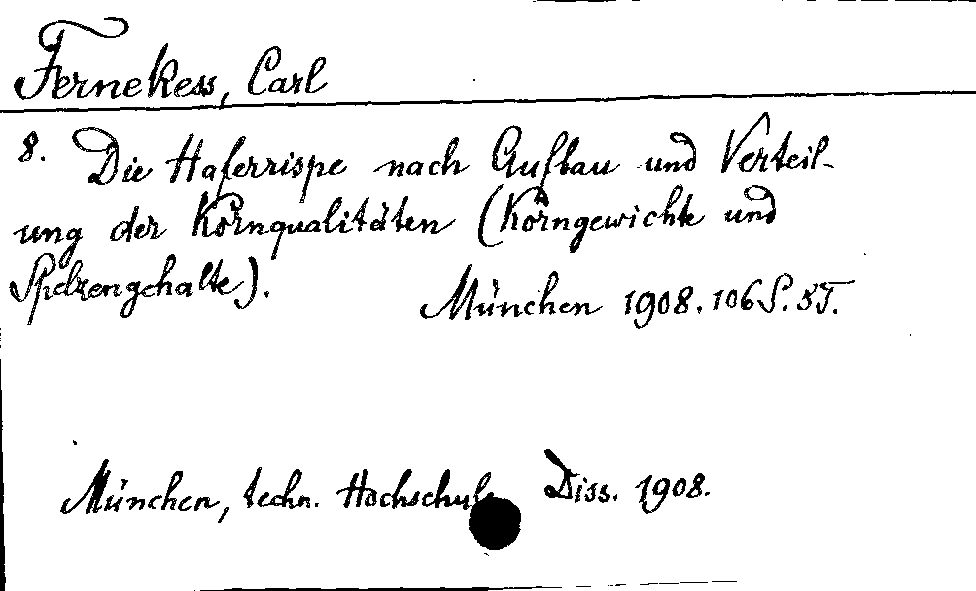 Fernekess, Carl
8. Die Haferrispe nach Aufbau und Verteil-
ung der Kornqualitäten (Korngewichte und
Spelzengehalte).
München 1908. 106 S. 5 T.
München, techn. Hochschule Diss. 1908.